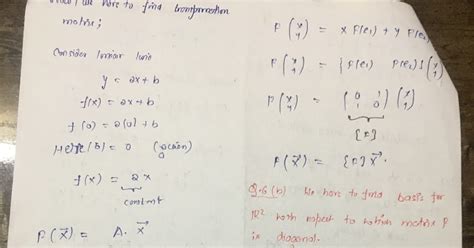 we have to find transformation
matrix;
Consider linear line
y = ax+b
f(x) = ax+b
f(0) = a(0)+b
Here (b) = 0
f(x) = ax
constant
F(x⃗) = A. x⃗
F(x y) = x F(e1) + y F(e2)
F(x y) = {F(e1) F(e2)}(x y)
F(x y) = (0 1 1 0)(x y)
F(x⃗) = x⃗.
(b) We have to find basis for
R² with respect to which matrix F
is diagonal.